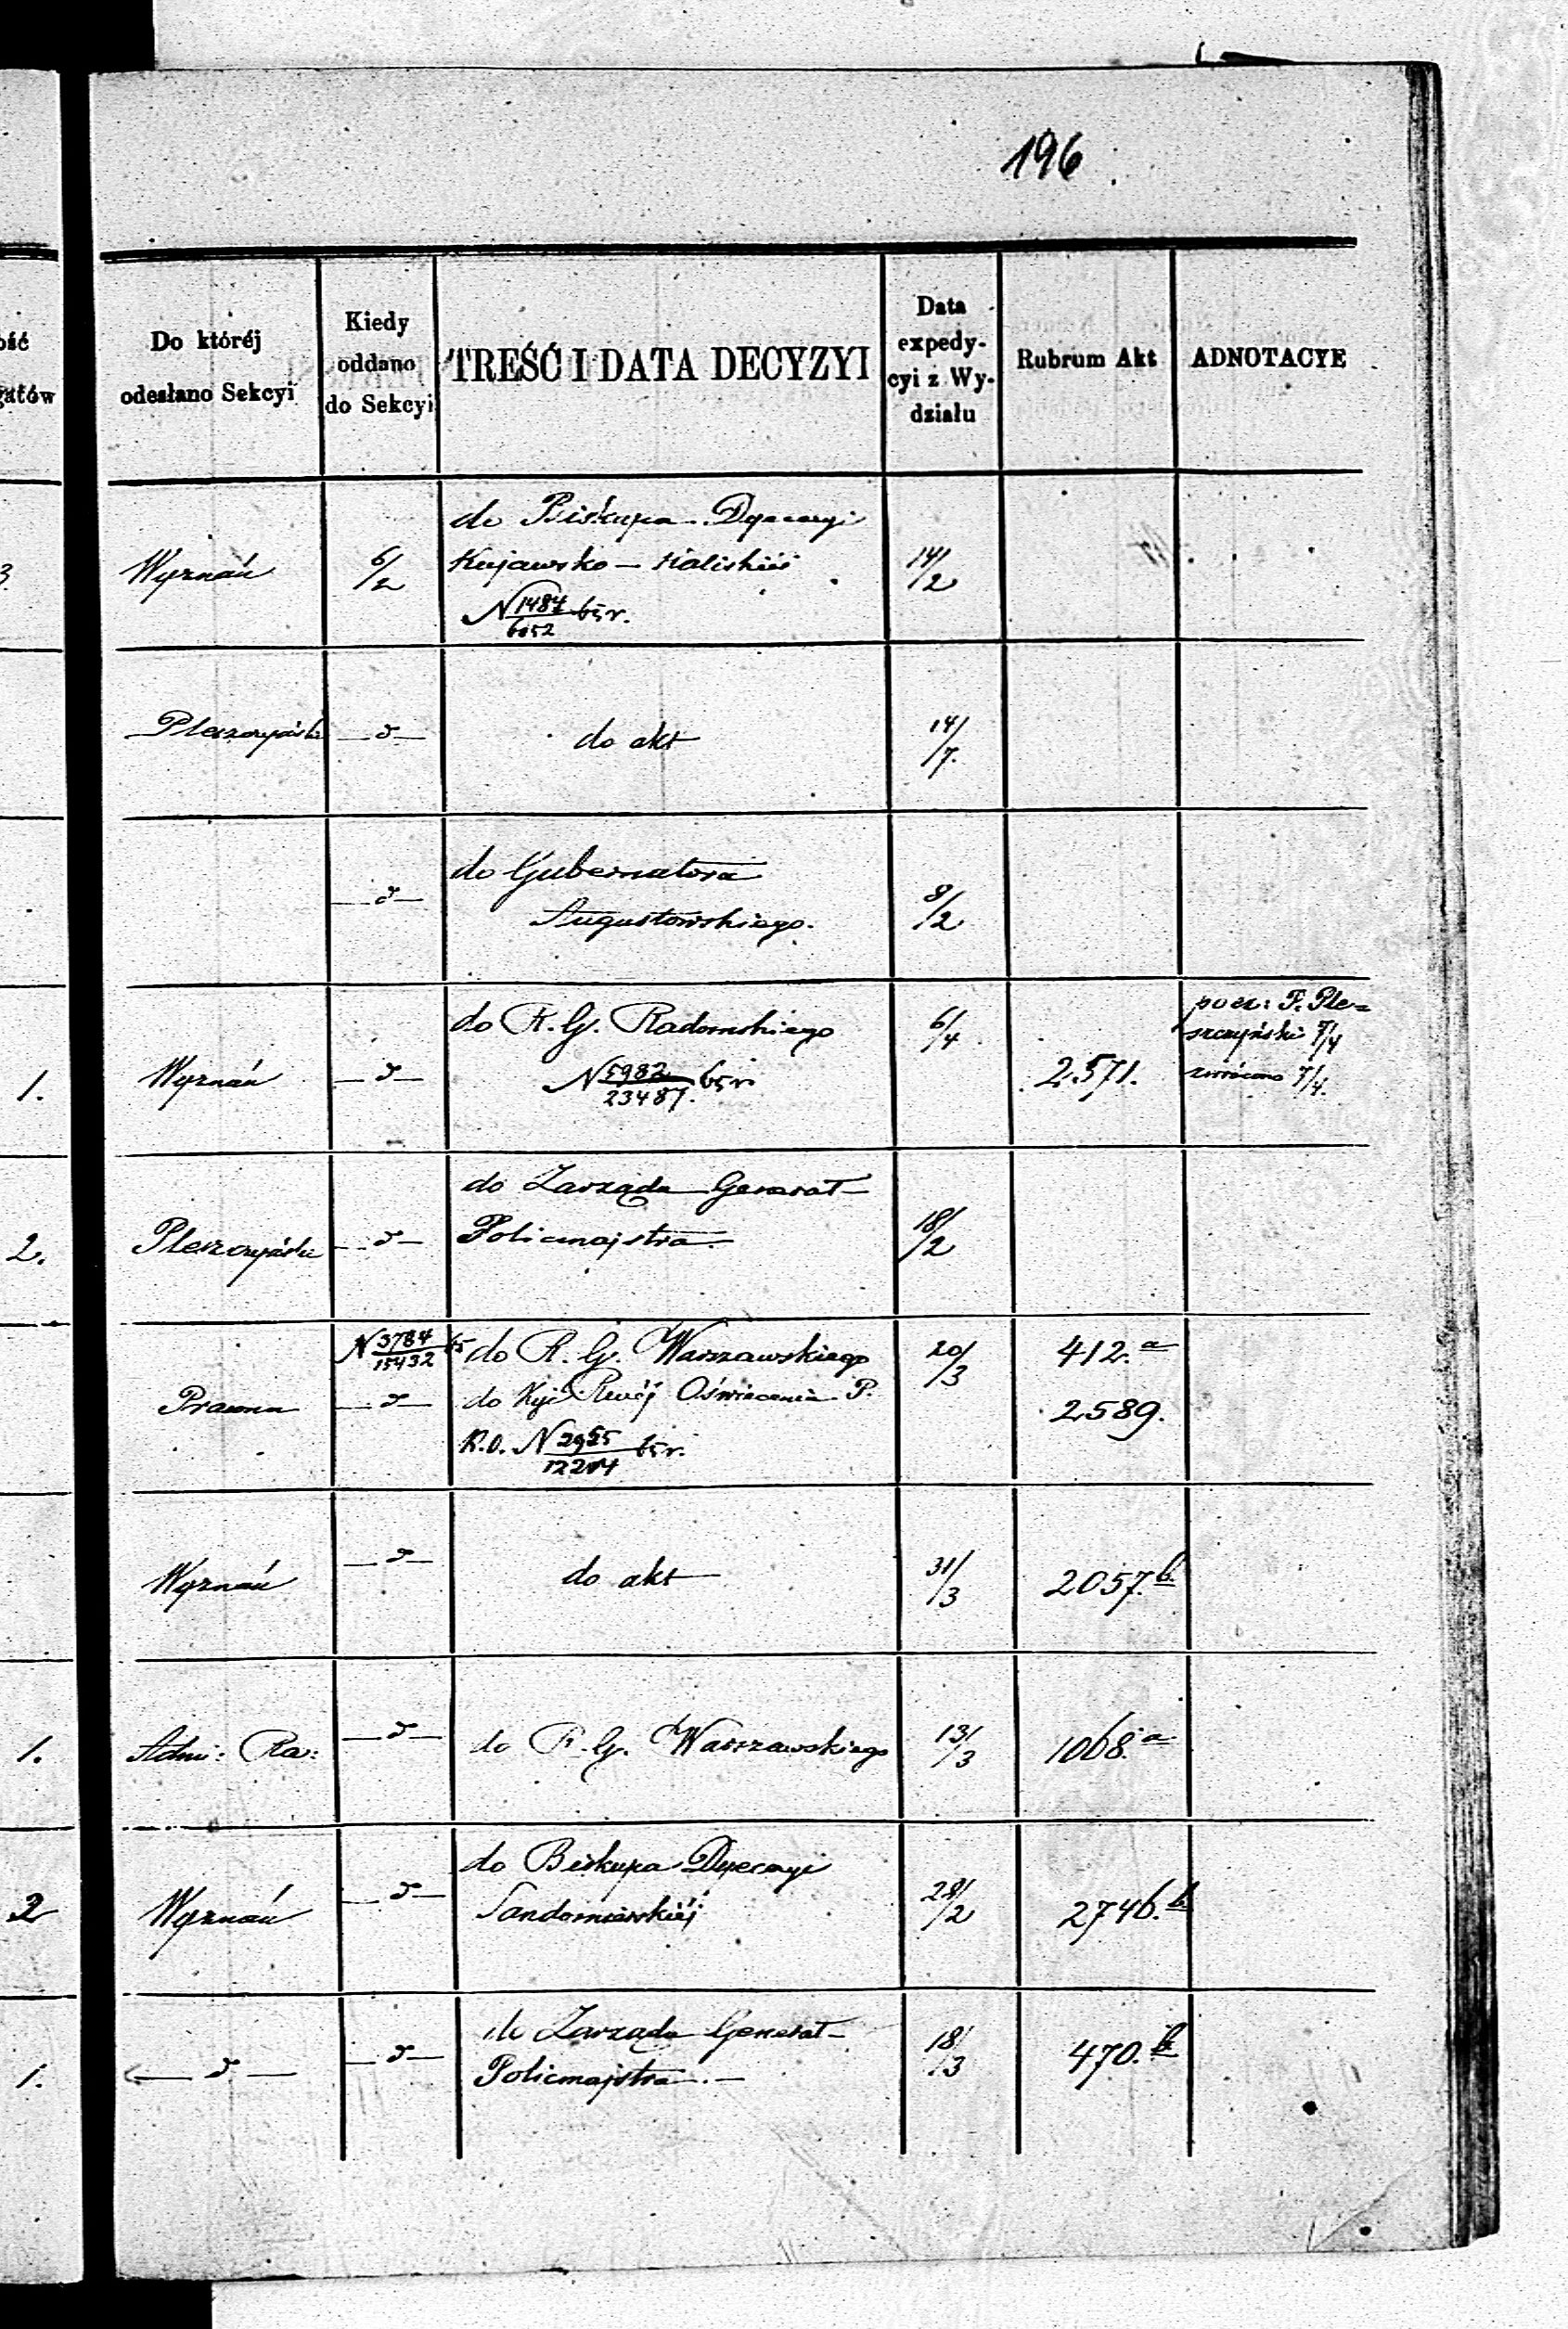 196
ość
gatów
Do któréj
odesłano Sekcyi
Kiedy
oddano
do Sekcyi
TREŚĆ I DATA DECYZYI
Data
expedy-
cyi z Wy-
działu
Rubrum Akt
ADNOTACYE
3
Wyznań
6/2
do Biskupa Dyecezyi
Kujawsko - Kaliskiéj
N 1487/6052 65 r.
14/2
Pleszczyński
— d —
do akt
14/7.
— d —
do Gubernatora
Augustowskiego.
8/2
1.
Wyznań
— d —
do R. G. Radomskiego
N 5982/23487. 65 r.
6/4
2571.
pocz: P. Ple=
szczyński 7/4
zwrócono 7/4.
2.
Pleszczyński
— d —
do Zarządu Generał-
Policmajstra.
18/2
Prawna
N 3784/15432 65
— d —
do R. G. Warszawskiego
do Oświecenia P.
K.O. N 2955/12204 65 r.
20/3
412.a
2589.
Wyznań
— d —
do akt
31/3
2057.b
1.
Admi: Ra:
— d —
do R. G. Warszawskiego
13/3
1068.a
2
Wyznań
— d —
do Biskupa Dyecezyi
Sandomierskiéj
28/2
2746.b
1.
— d —
— d —
do Zarządu Generał-
Policmajstra. —
18/3
470.b